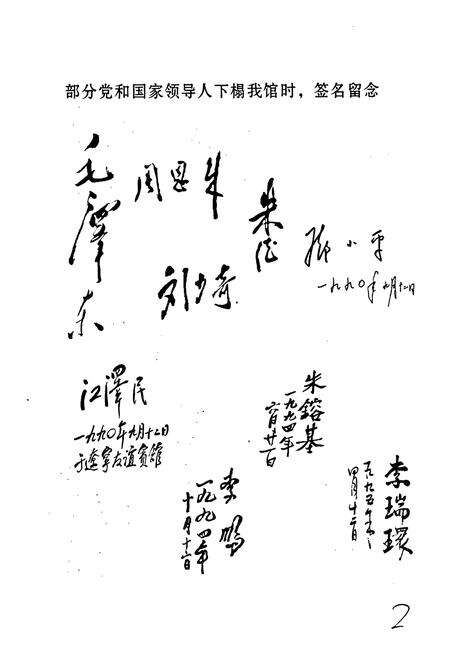 部分党和国家领导人下榻我馆时，签名留念
毛泽东
周恩来
朱德
邓小平
一九九〇年
刘少奇
江澤民
一九九〇年九月十二日
于遼寧友谊賓館
朱鎔基
一九九四年
六月廿一日
李鹏
一九九四年
十月十六日
李瑞環
一九九五年
四月十二日
2